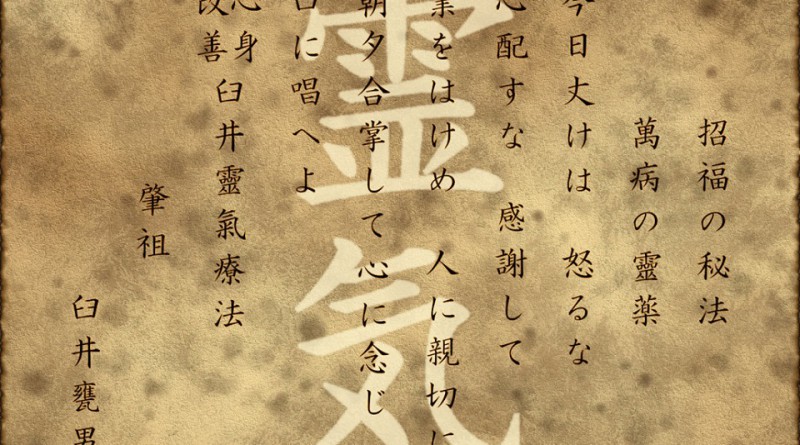 招福の秘法
萬病の靈薬
今日丈けは 怒るな
心配すな 感謝して
業をはけめ 人に親切に
朝夕合掌して心に念じ
口に唱へよ
心身改善 臼井靈氣療法
肇祖
臼井甕男
霊気